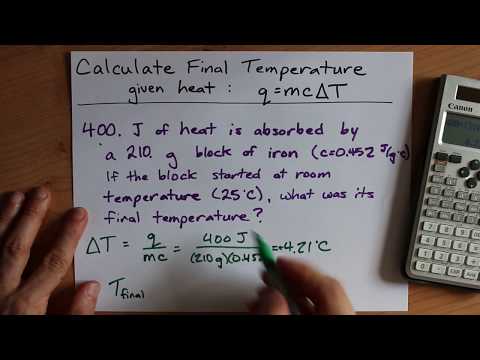 Calculate Final Temperature
given heat : q=mcΔT
400. J of heat is absorbed by
a 210. g block of iron (c=0.452 J/g·°C)
If the block started at room
temperature (25°C), what was its
final temperature?
ΔT = q/mc = 400 J/(210g)(0.452 = +4.21°C
Tfinal
Canon